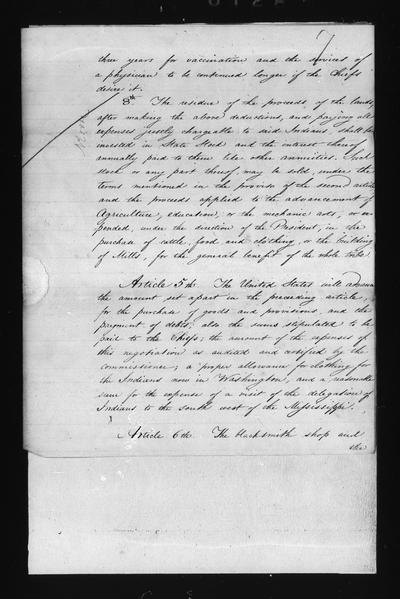 7
three years for vaccination and the services of
a physician to be continued longer if the Chiefs
desire it.
8th The residue of the proceeds of the lands,
after making the above deductions, and paying all
expenses justly chargeable to said Indians shall be
invested in State Stock and the interest thereof
annually paid to them like other annuities. Such
stock or any part thereof, may be sold, under the
terms mentioned in the proviso of the second article
and the proceeds applied to the advancement of
Agriculture, education, or the mechanic arts, or ex-
pended, under the direction of the President, in the
purchase of cattle, food and clothing, or the building
of Mills, for the general benefit of the whole tribe.
Article 5th. The United States will advance
the amount set apart in the preceding article,
for the purchase of goods and provisions, and the
payment of debts; also the sums stipulated to be
paid to the Chiefs; the amount of the expenses of
this negotiation as audited and certified by the
commissioner; a proper allowance for clothing for
the Indians now in Washington, and a reasonable
sum for the expense of a visit of the delegation of
Indians to the south west of the Mississippi.
Article 6th. The blacksmith shop and
the